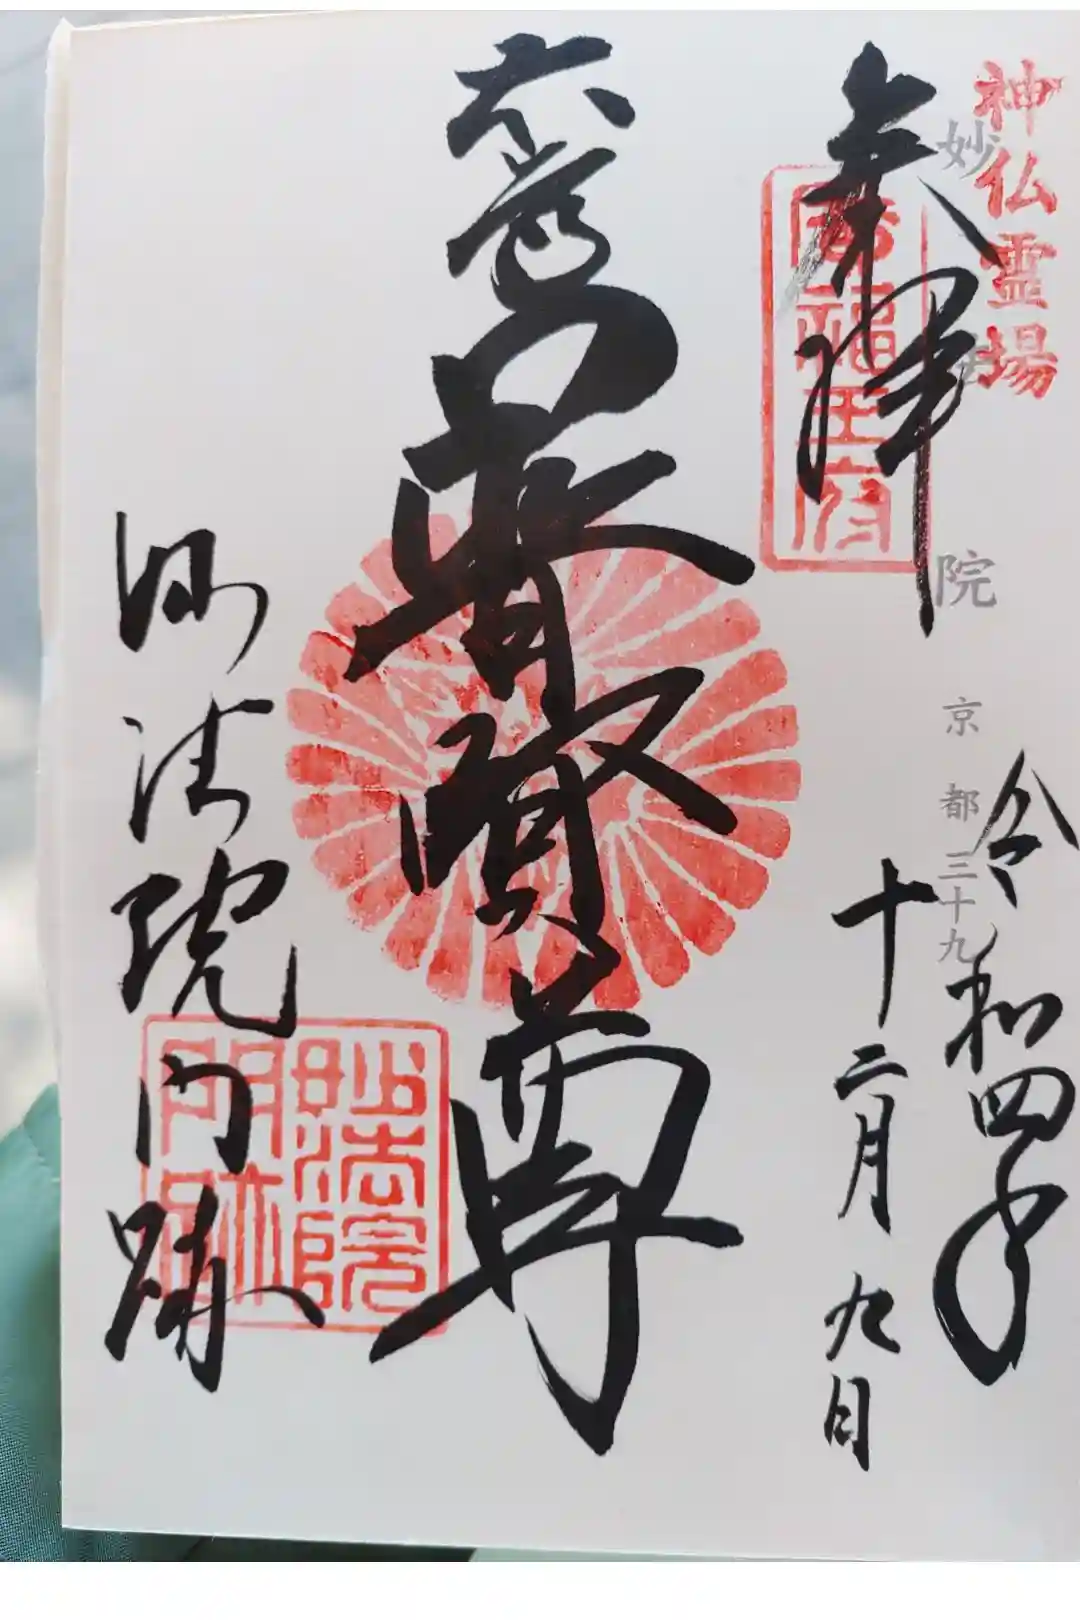 神仏霊場
妙法院
京都三十九
奉拝
令和四年
十二月九日
普賢尊
妙法院門跡
妙法院
門跡